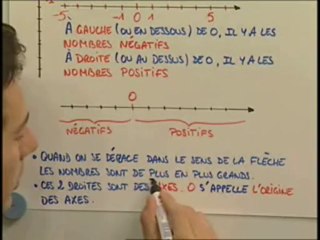 -5 -1 0 1 5
À GAUCHE (OU EN DESSOUS) DE 0, IL Y A LES
NOMBRES NÉGATIFS
À DROITE (OU AU DESSUS) DE 0, IL Y A LES
NOMBRES POSITIFS
0
NÉGATIFS POSITIFS
• QUAND ON SE DÉPLACE DANS LE SENS DE LA FLÈCHE
LES NOMBRES SONT DE PLUS EN PLUS GRANDS.
• CES 2 DROITES SONT DES AXES. 0 S'APPELLE L'ORIGINE
DES AXES.